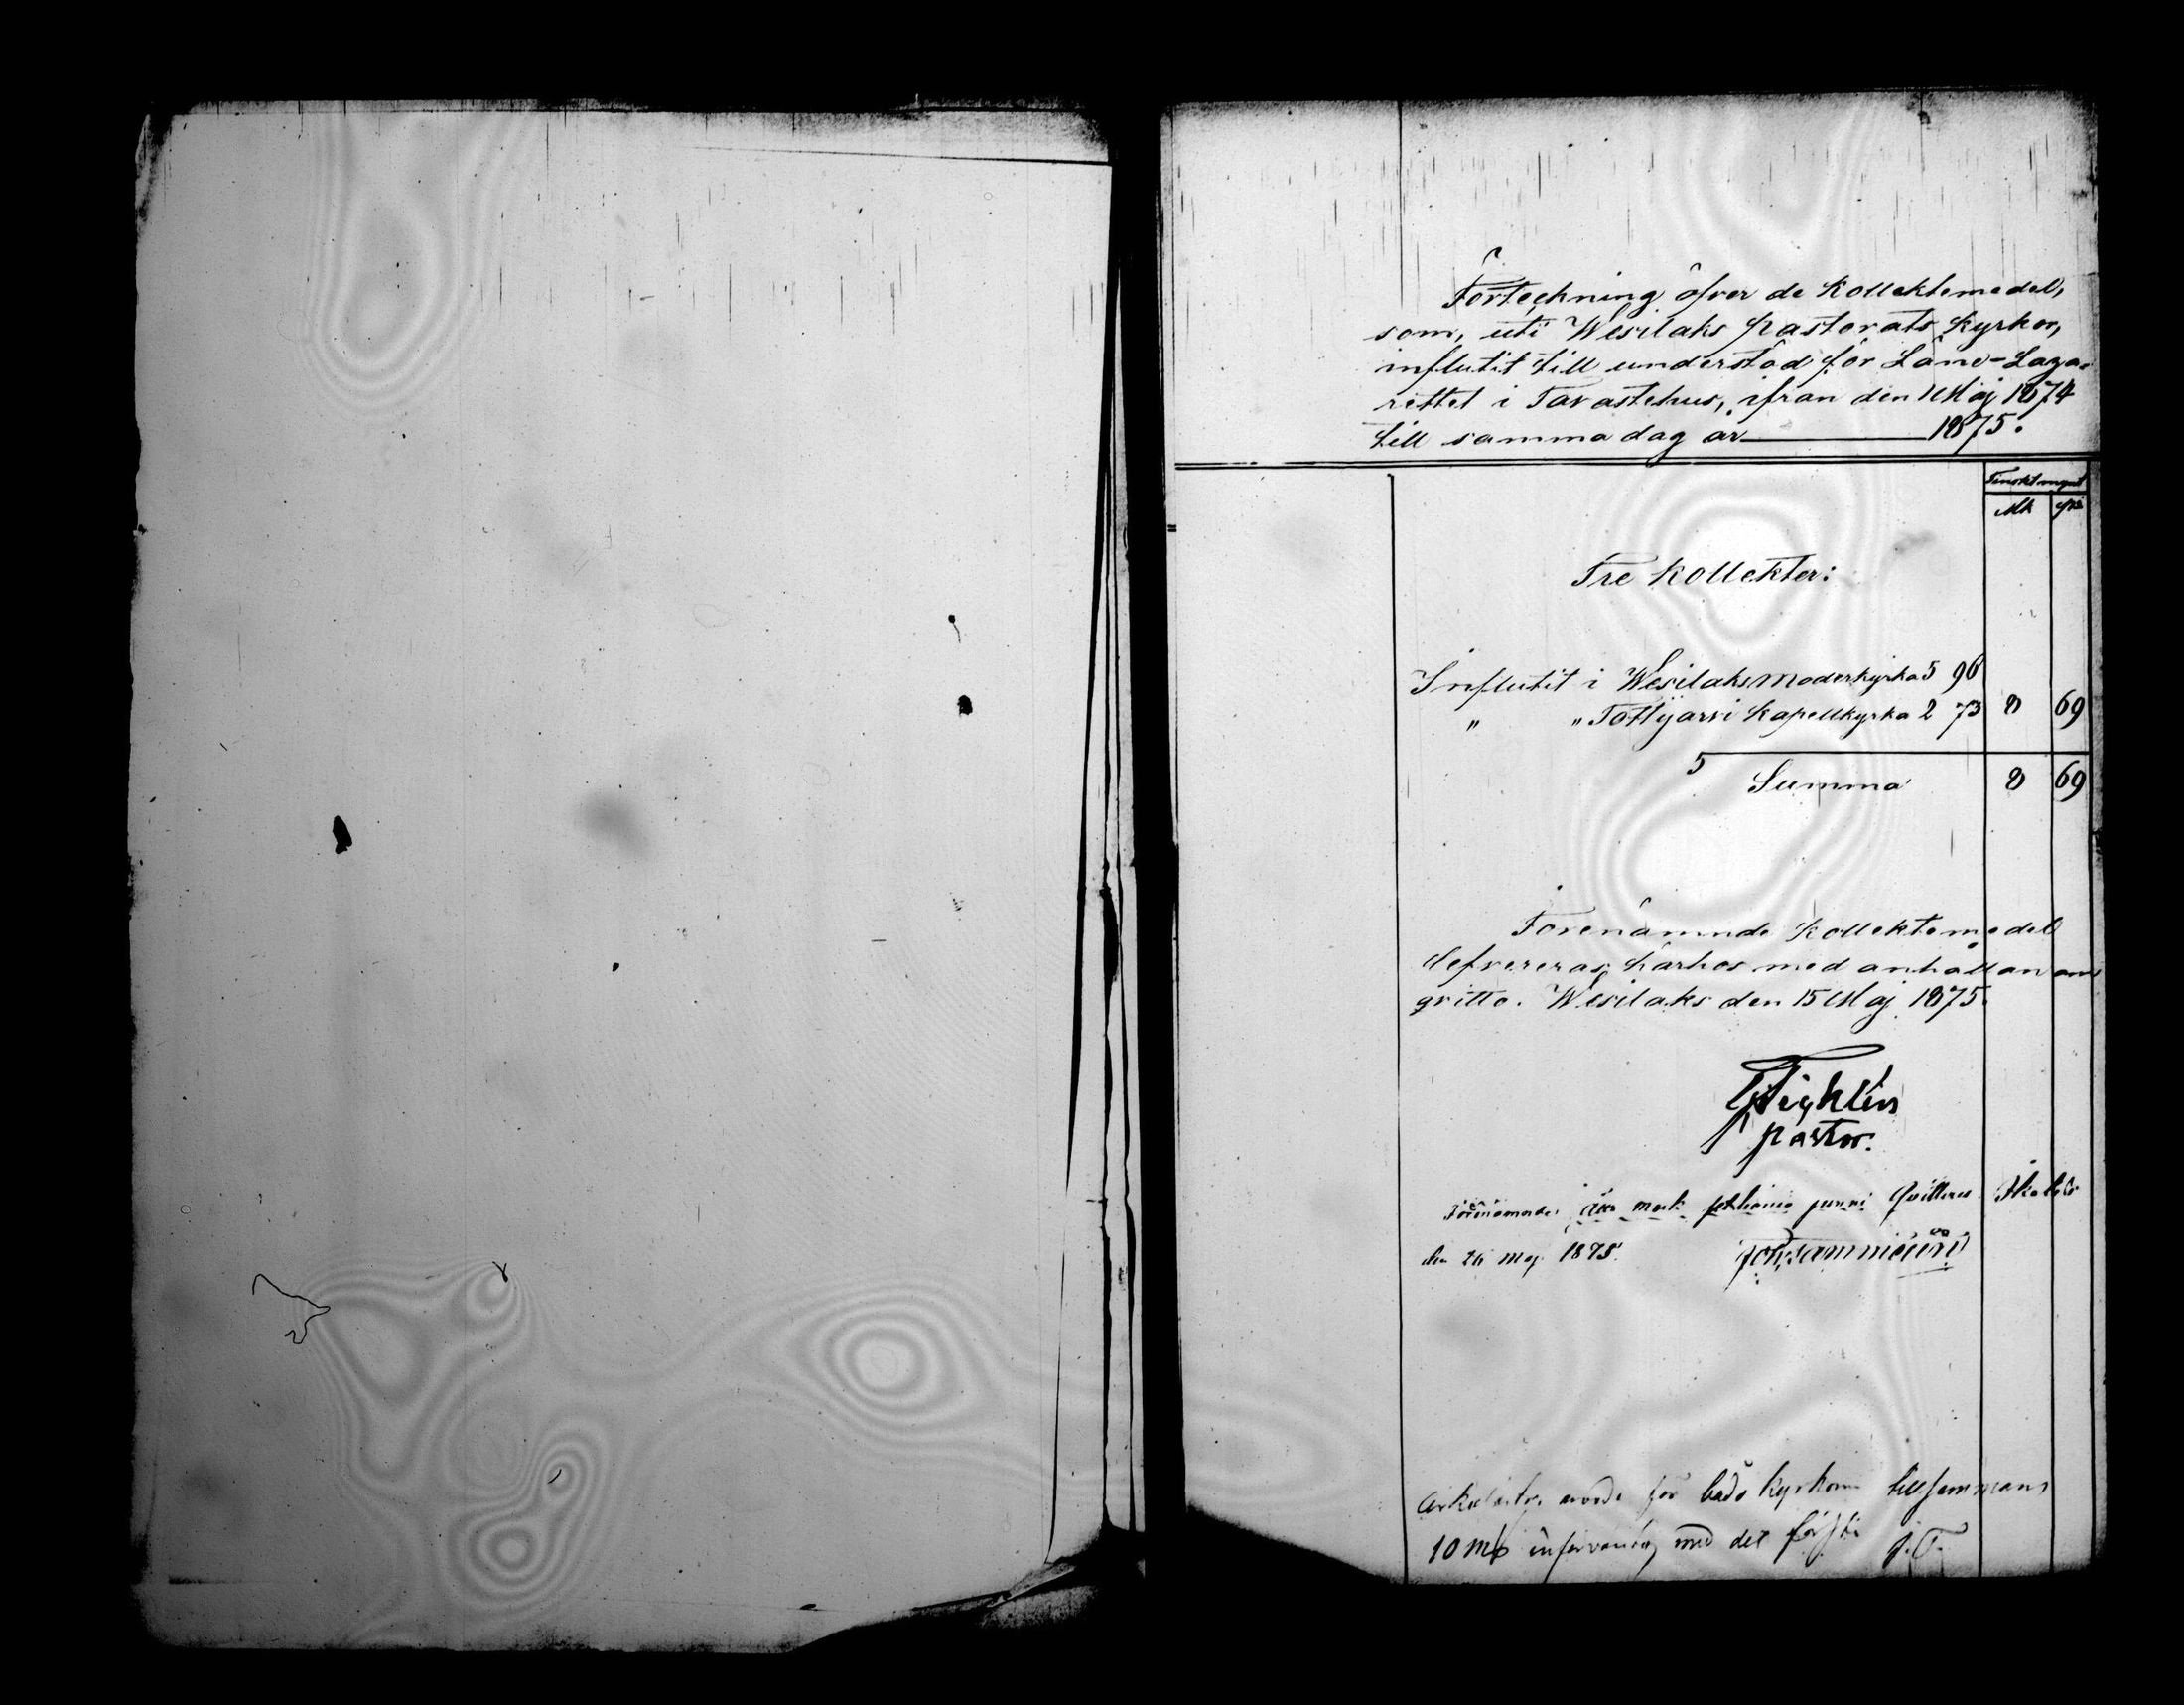 Förteckning öfver de Kollektemedel,
som, uti Wesilaks pastorats Kyrkor,
influtit till understöd för Läns-Laza-
rettet i Tavastehus, ifrån den 1 Maj 1874
till samma dag år 1875.
Finskt mynt
Mk pi
Tre Kollekter:
Influtit i Wesilaks Moderkyrka 5 96
" " Tottijärvi Kapellkyrka 2 73 8 69
5
Summa 8 69
Förenämnde Kollektemedel
lefvereras härhos med anhållan om
qvitto. Wesilaks den 15 Maj 1875.
pastor.
Förenämnde mark penni Qvitteras
den 26 Maj 1875.
för både Kyrkorna tillsammans
10 Mk med det första J. T.